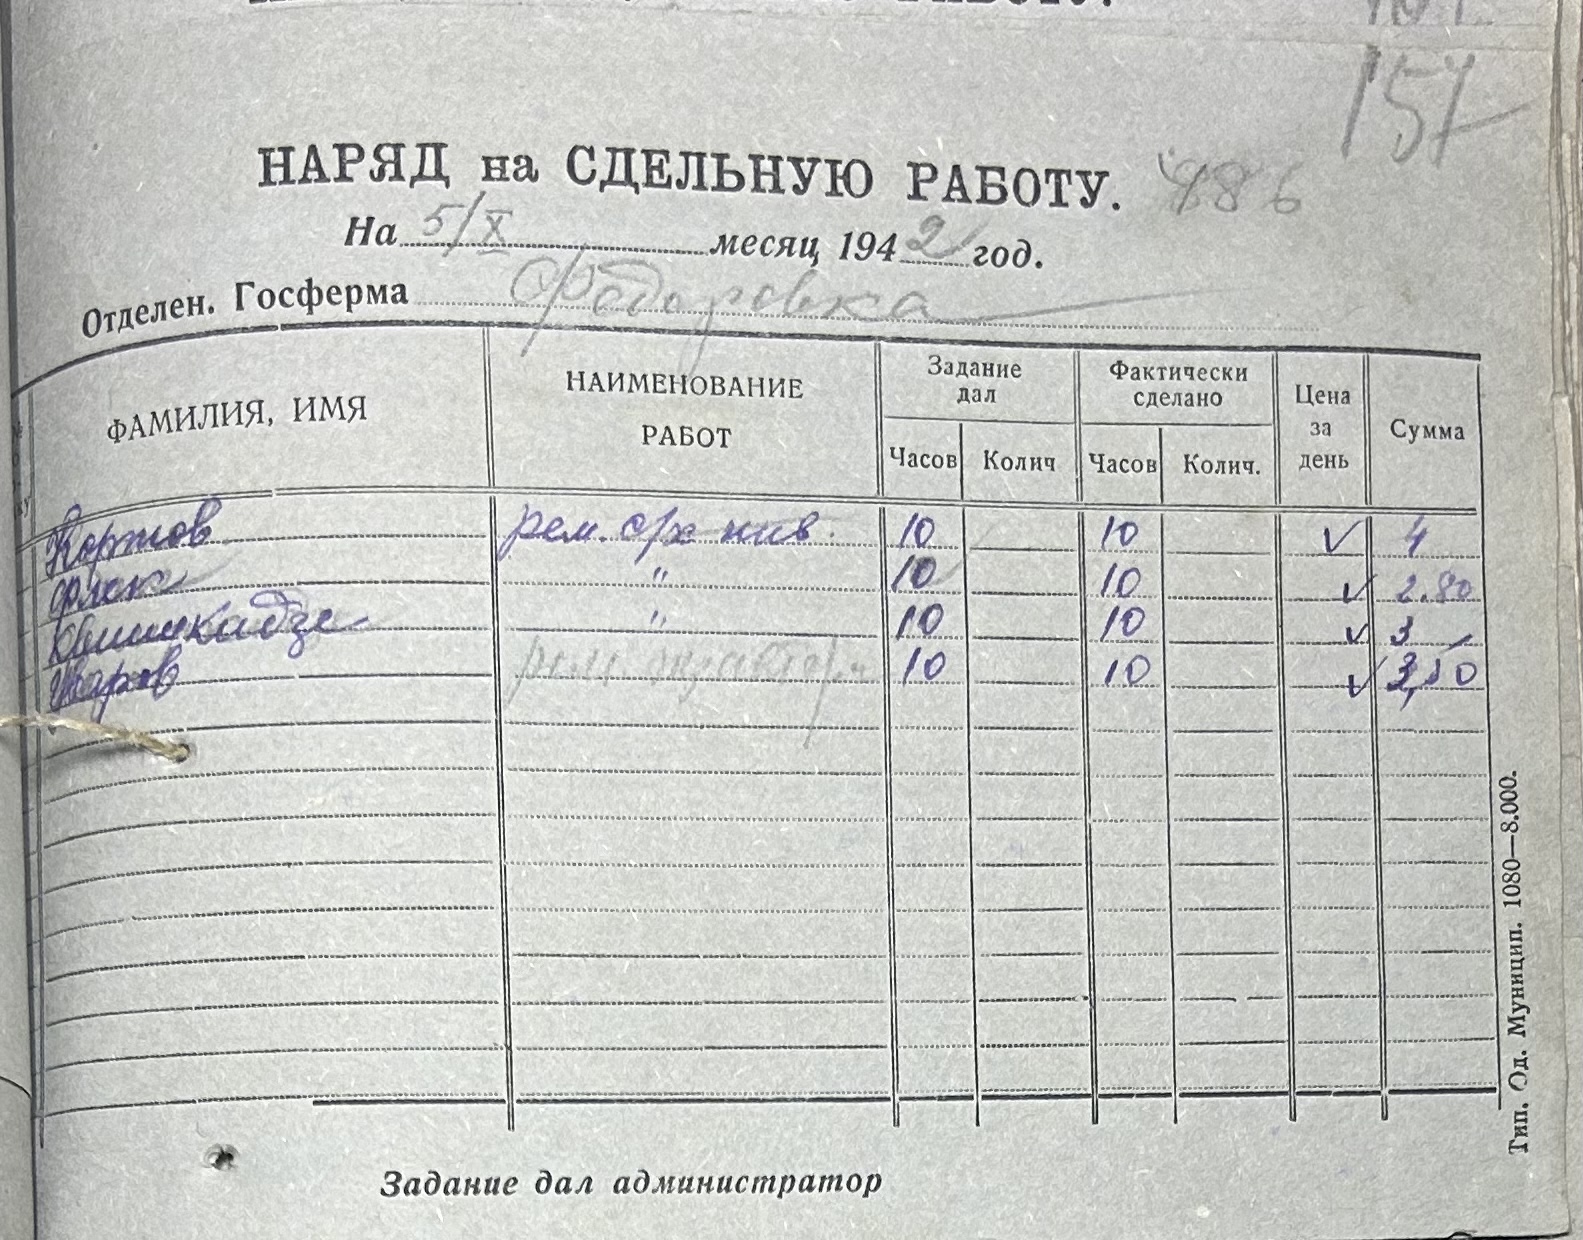 157
НАРЯД на СДЕЛЬНУЮ РАБОТУ. 886
На 5/X месяц 1942 год.
Отделен. Госферма Федоровка
ФАМИЛИЯ, ИМЯ НАИМЕНОВАНИЕ РАБОТ Задание дал Фактически сделано Цена за день Сумма
Часов Колич Часов Колич.
Кортов рем. с/х инв. 10 10 ✓ 4
Флок " 10 10 ✓ 2.80
" 10 10 ✓ 3
рем 10 10 ✓ 3,50
Задание дал администратор
Тип. Од. Муницип. 1080—8.000.